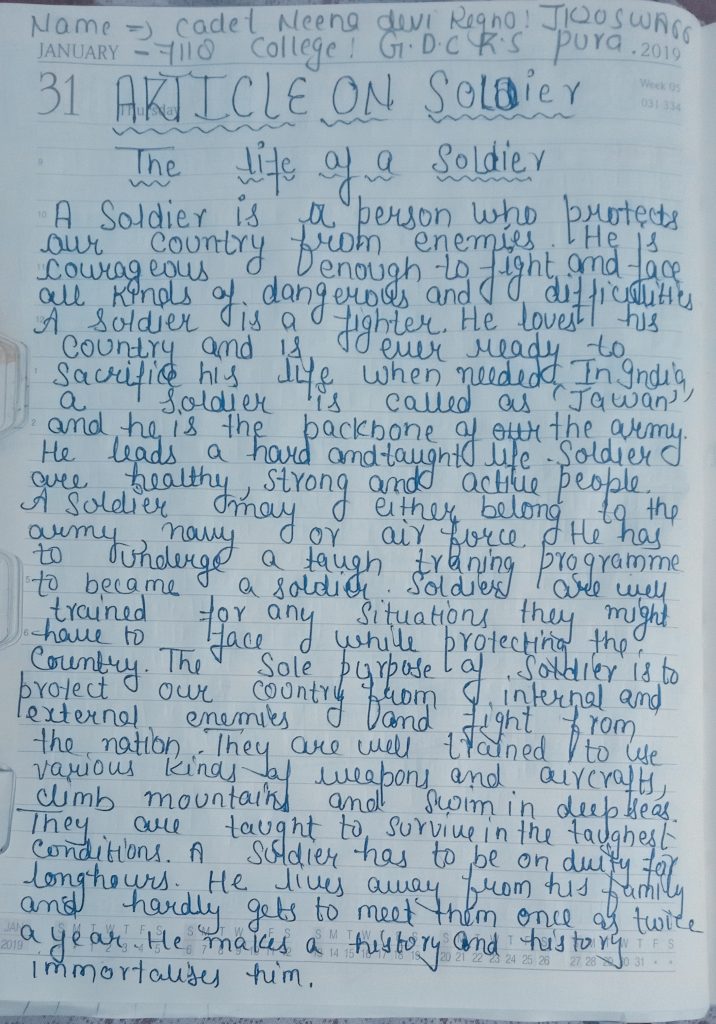 Name => Cadet Neena devi Regno! J120SWA66
JANUARY - 7118 College! G.D.C R.S pura. 2019
31 Thursday ARTICLE ON Soldier Week 05
031-334
The life of a Soldier
A Soldier is a person who protects
our country from enemies. He is
courageous enough to fight and face
all kinds of dangerous and difficulities
A soldier is a fighter. He loves his
country and is ever ready to
sacrifice his life when needed. In India,
a soldier is called as "Jawan"
and he is the backbone of our the army.
He leads a hard and taught life. Soldier
are healthy, strong and active people.
A Soldier may either belong to the
army, navy or air force. He has
to underge a taugh traning programme
to became a soldier. Soldiers are well
trained for any situations they might
have to face while protecting the
Country. The Sole purpose of Soldier is to
protect our country from internal and
external enemies and fight from
the nation. They are well trained to use
various kinds of weapons and aircrafts,
climb mountains and swim in deep seas.
They are taught to survive in the taughest
conditions. A soldier has to be on duity for
longhours. He lives away from his family
and hardly gets to meet them once as twice
a year. He makes a history and history
immortalises him.